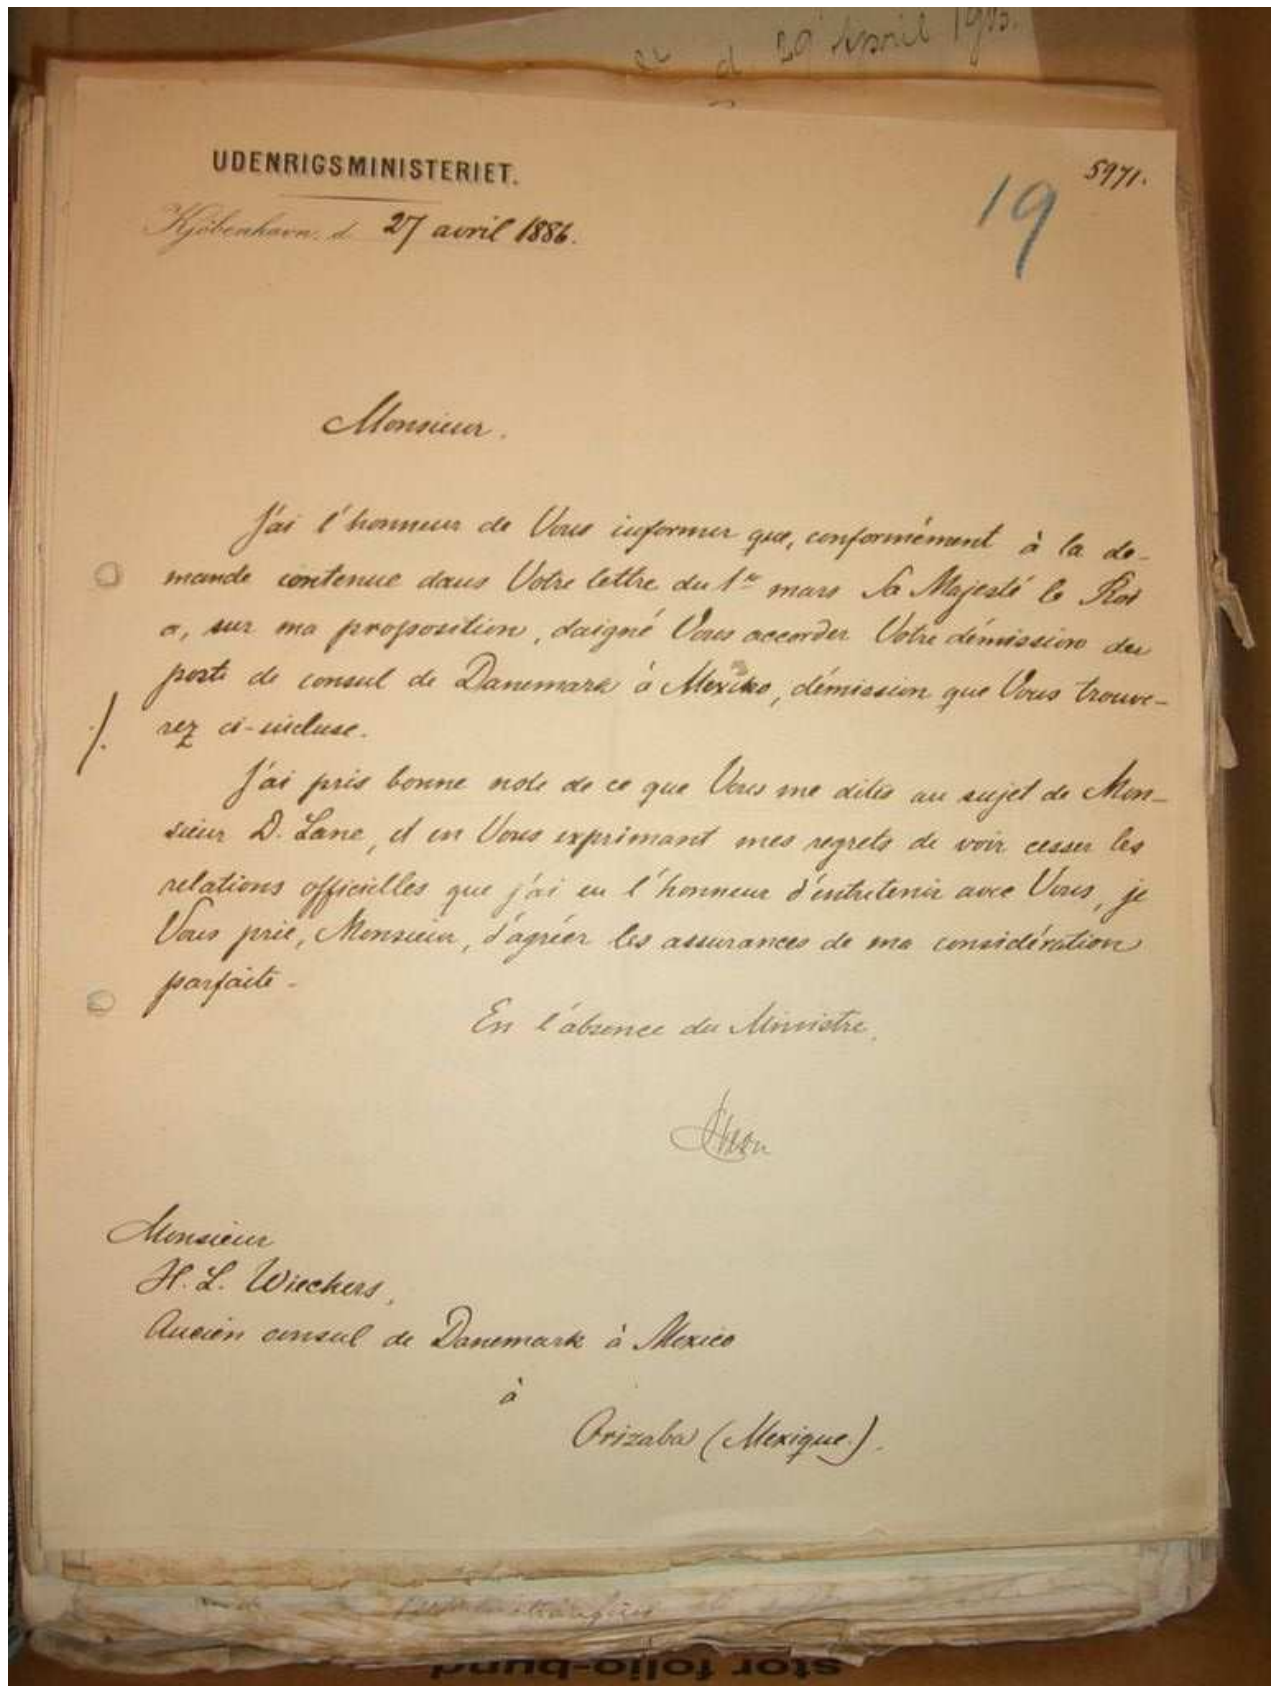 d. 29 April
UDENRIGSMINISTERIET.
5971.
19
Kjöbenhavn, d. 27 avril 1886.
Monsieur.
J'ai l'honneur de Vous informer que, conformément à la de-
mande contenue dans Votre lettre du 1er mars Sa Majesté le Roi
a, sur ma proposition, daigné Vous accorder Votre démission du
poste de consul de Danemark à Mexiko, démission que Vous trouve-
./.
rez ci-incluse.
J'ai pris bonne note de ce que Vous me dites au sujet de Mon-
sieur D. Lane, et en Vous exprimant mes regrets de voir cesser les
relations officielles que j'ai eu l'honneur d'entretenir avec Vous, je
Vous prie, Monsieur, d'agréer les assurances de ma considération
parfaite.
En l'absence du Ministre,
Monsieur
H. L. Wiechers,
Ancien consul de Danemark à Mexico
à
Orizaba (Mexique).
stor folio-bund